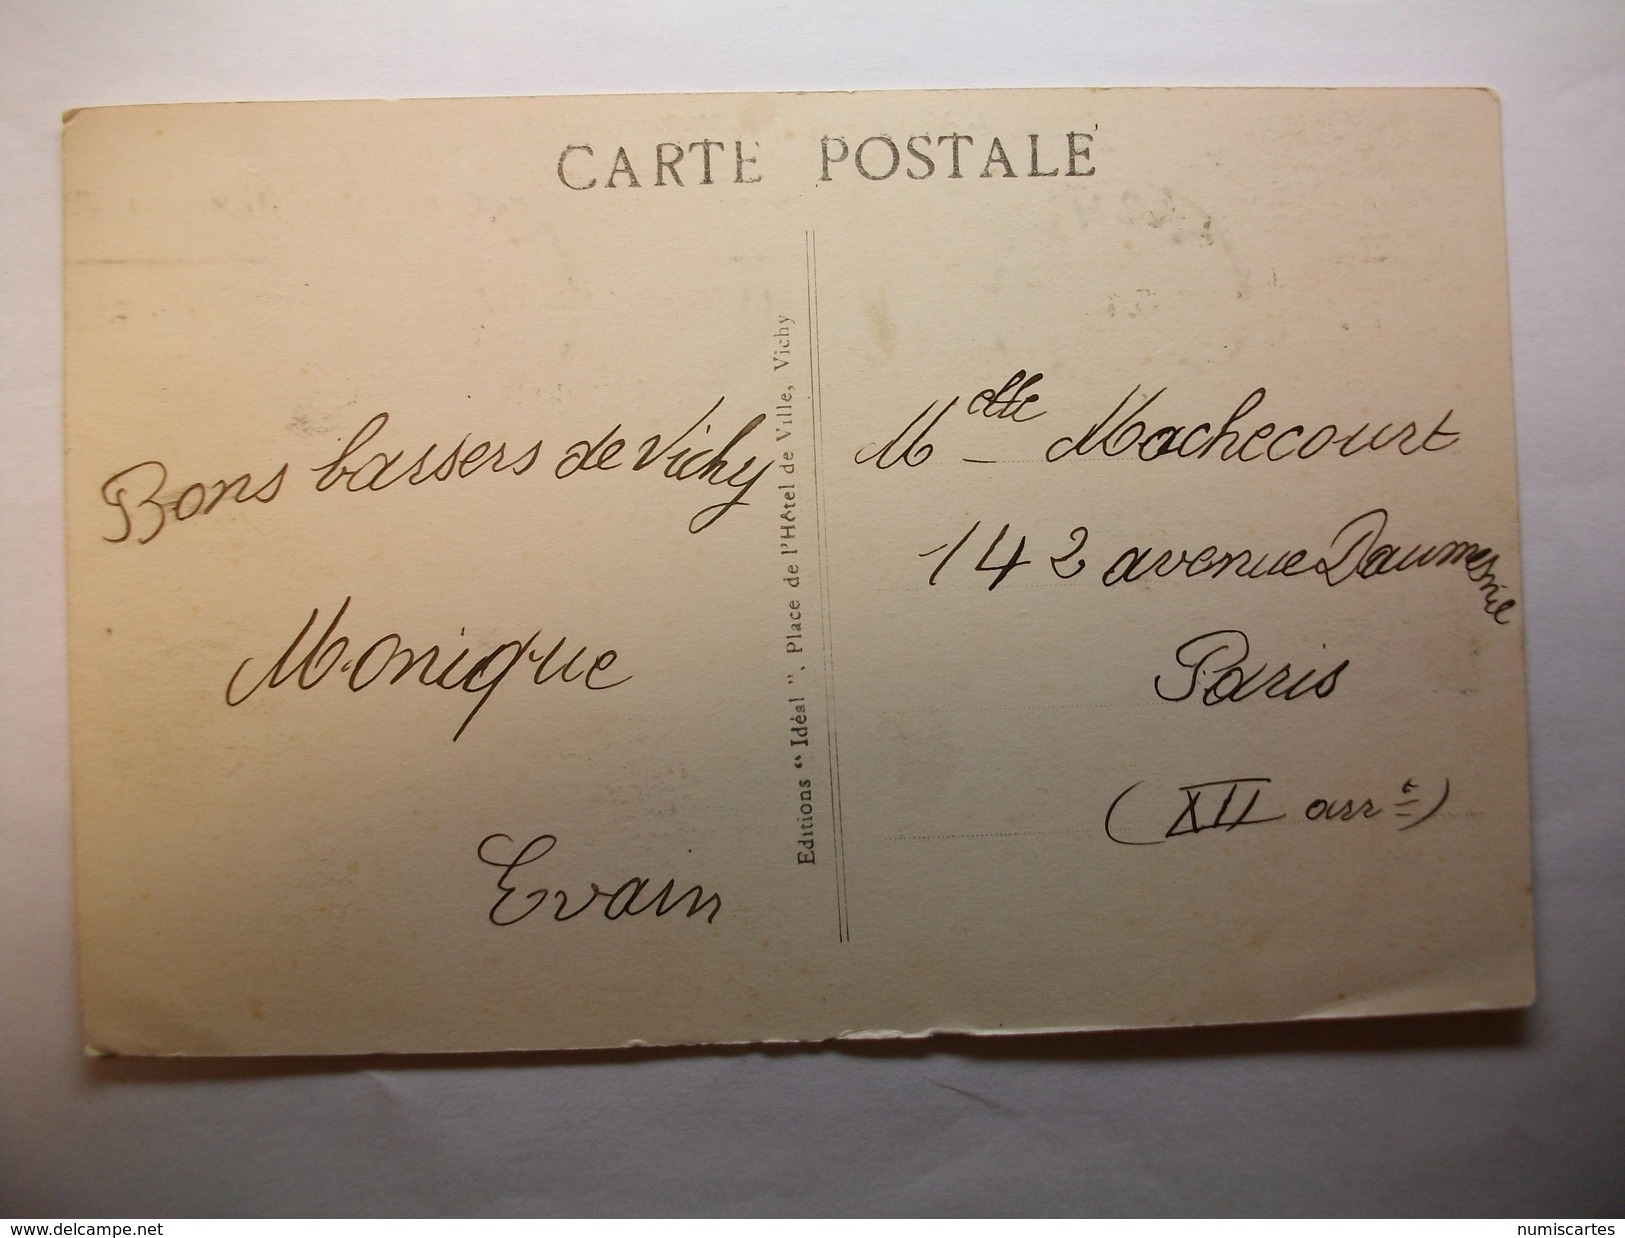 CARTE POSTALE
Bons bassers de Vichy
Monique
Evain
Editions “ Idéal ”, Place de l'Hôtel de Ville, Vichy
Melle Machecourt
142 avenue Daumesnil
Paris
(XII arrt)
www.delcampe.net
numiscartes